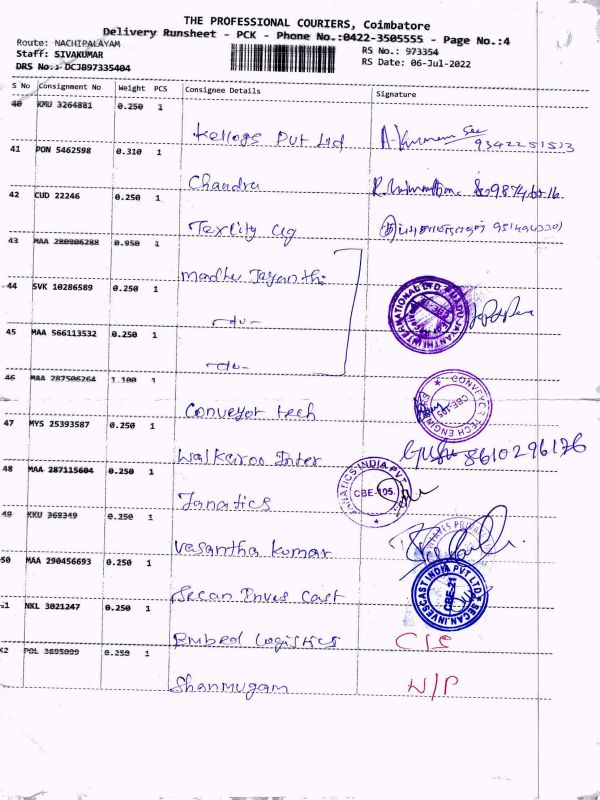 THE PROFESSIONAL COURIERS, Coimbatore
Delivery Runsheet - PCK - Phone No.:0422-3505555 - Page No.:4
Route: NACHIPALAYAM
RS No.: 973354
Staff: SIVAKUMAR
RS Date: 06-Jul-2022
DRS No.: DCJB97335404
S No Consignment No Weight PCS Consignee Details Signature
40 KMU 3264881 0.250 1
Kellogs Pvt Ltd 9342251513
41 PON 5462598 0.310 1
Chandra
42 CUD 22246 0.250 1
Texcity
43 MAA 280906288 0.950 1
Madhu Jayanthi
44 SVK 10286589 0.250 1
MADHU JAYANTHI INTERNATIONAL LTD.
-du-
45 MAA 566113532 0.250 1
-du-
46 MAA 287506264 1.100 1
Conveyor tech
CONVEYOR TECH ENGINEERS
CBE-105
47 MYS 25393587 0.250 1
Walkaroo Inter
Guru 8610296176
48 MAA 287115604 0.250 1
Fanatics
FANATICS INDIA PVT
CBE-105.
49 KKU 368349 0.250 1
Vasantha Kumar
50 MAA 290456693 0.250 1
Secan Inves Cast
SECAN INVESCAST INDIA PVT LTD
CBE-21
51 NKL 3021247 0.250 1
Embed Logistics C/S
52 POL 3695099 0.250 1
Shanmugam N/P